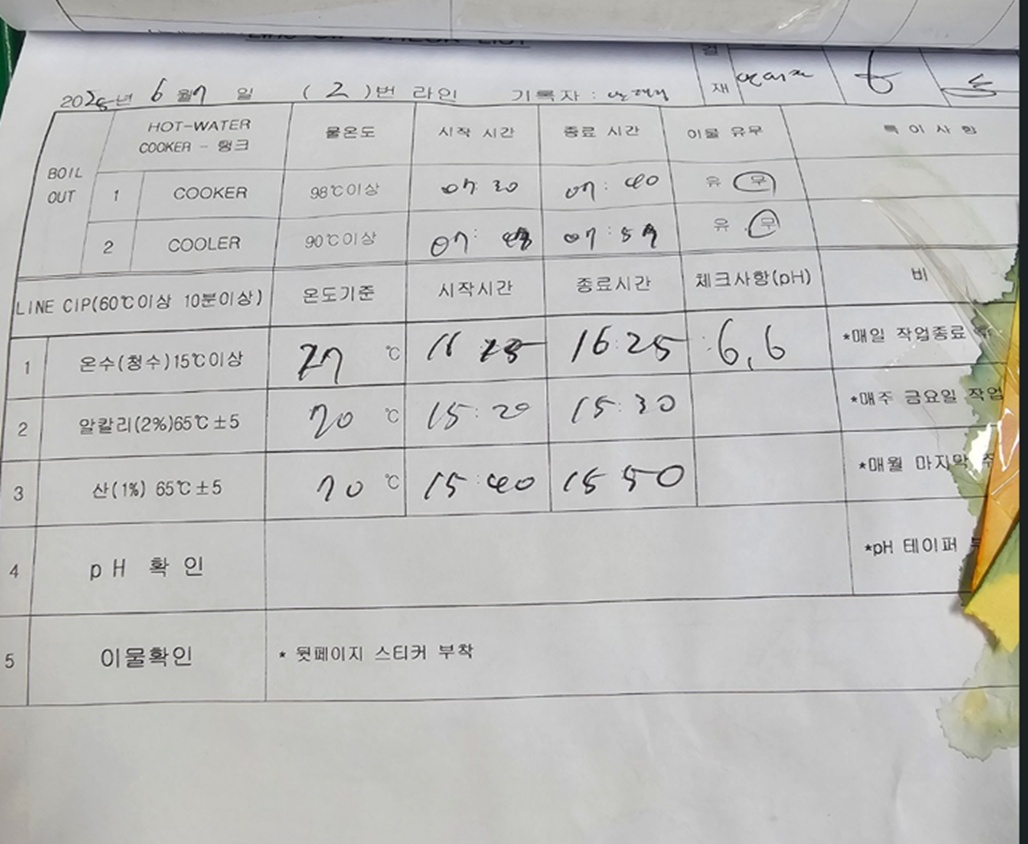 LINE CIP CHECK LIST
결
재
6월 7일 ( 2 )번 라인 기록자 :
BOIL OUT HOT-WATER COOKER - 탱크 물온도 시작 시간 종료 시간 이물 유무 특이사항
1 COOKER 98℃이상 07:30 07:40 유 무
2 COOLER 90℃이상 07: 07:59 유 무
LINE CIP(60℃이상 10분이상) 온도기준 시작시간 종료시간 체크사항(pH) 비
1 온수(청수)15℃이상 ℃ 16:25 6,6 *매일 작업종료
2 알칼리(2%)65℃±5 70 ℃ 15:20 15:30 *매주 금요일 작업
3 산(1%) 65℃±5 70 ℃ 15:40 15 50 *매월 마지막
4 pH 확인 *pH 테이퍼
5 이물확인 * 뒷페이지 스티커 부착